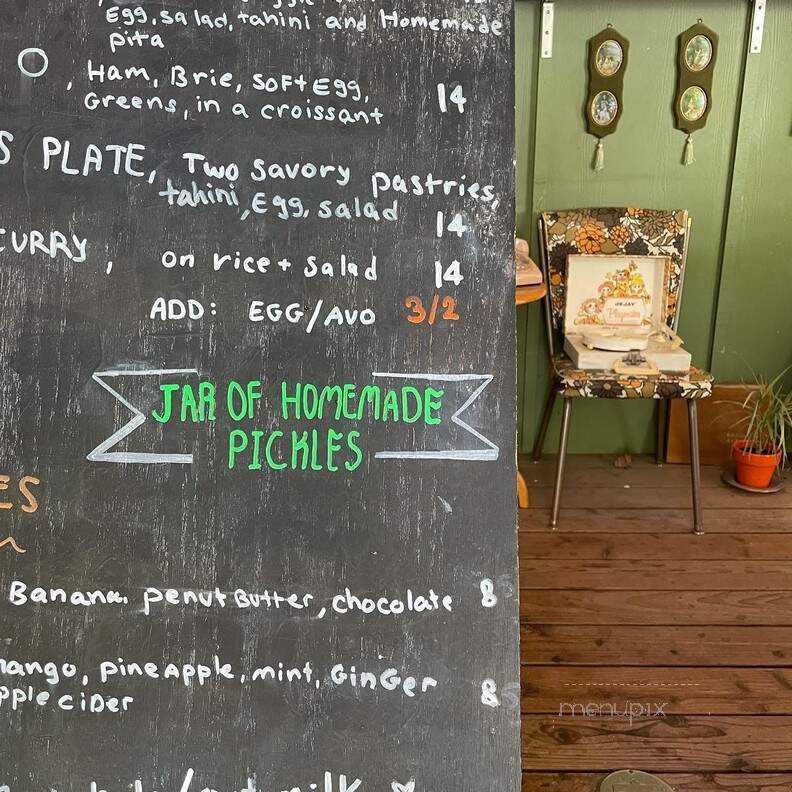 Egg, salad, tahini and Homemade
pita
O , Ham, Brie, Soft Egg,
Greens, in a croissant 14
S PLATE, Two Savory pastries,
tahini, Egg, salad
14
CURRY, on rice + Salad 14
ADD: EGG/AVO 3/2
JAR OF HOMEMADE
PICKLES
ES
Banana, penut Butter, chocolate 8
mango, pineApple, mint, GinGer
pple ciDer 8
milk
Playmates
menupix